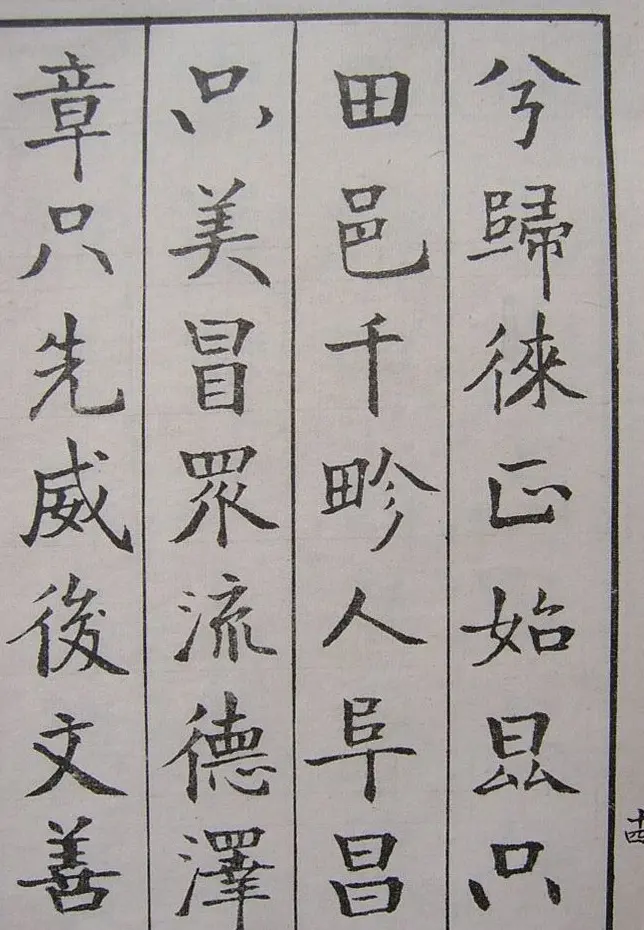 兮歸徠正始昆只
田邑千畛人阜昌
只美冒眾流德澤
章只先威後文善
十四